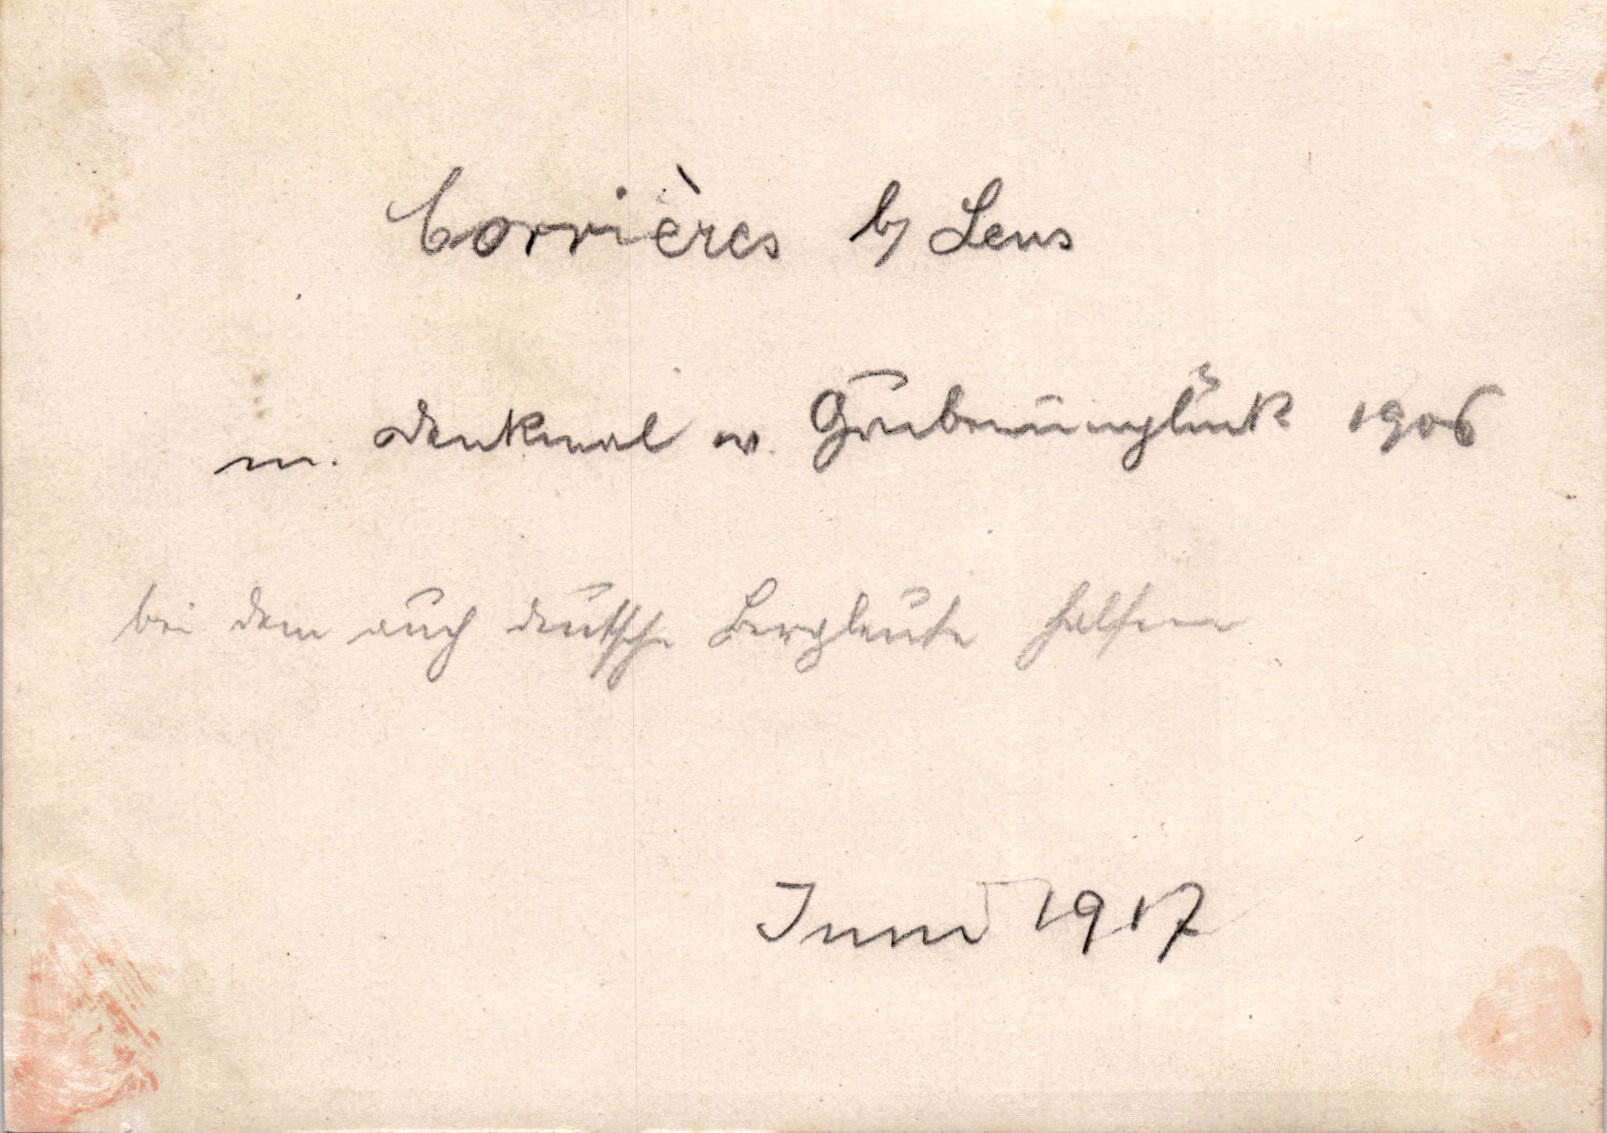 Corrières b/ Lens
m. Denkmal v. Grubenunglück 1906
bei dem auch deutsche Bergleute halfen
Juni 1917